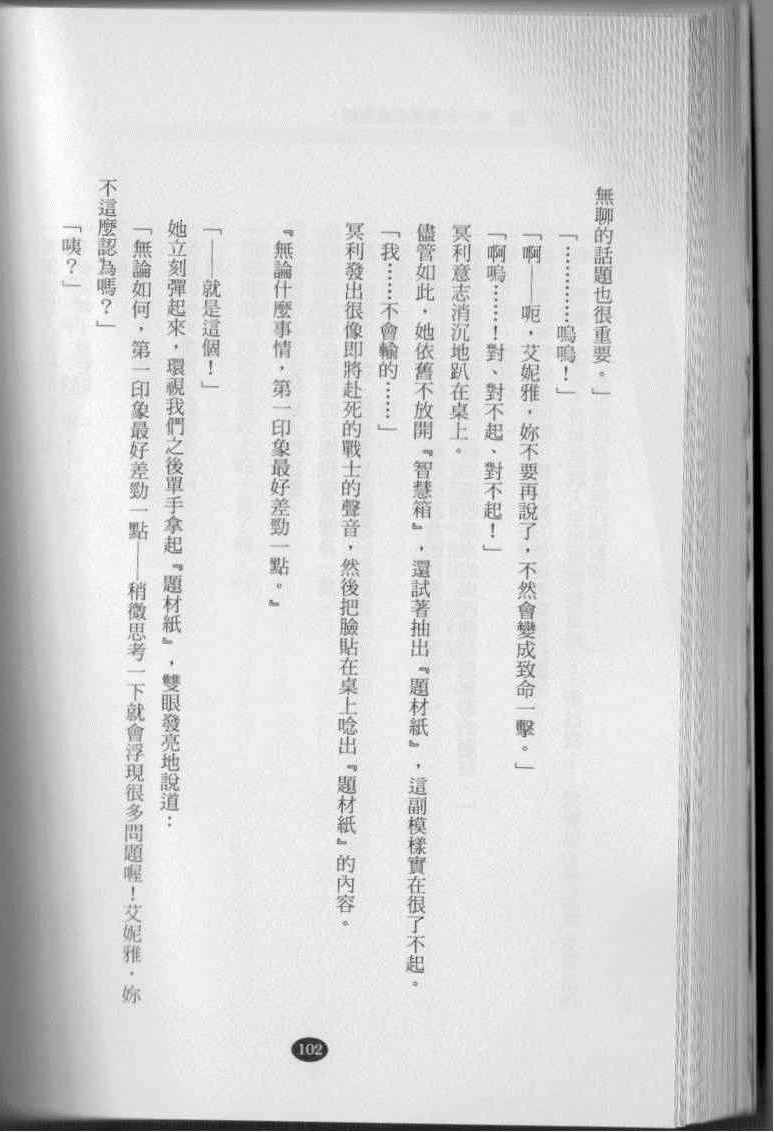 無聊的話題也很重要。」
「…………嗚嗚！」
「啊——呃，艾妮雅，妳不要再說了，不然會變成致命一擊。」
「啊嗚……！對、對不起、對不起！」
冥利意志消沉地趴在桌上。
儘管如此，她依舊不放開『智慧箱』，還試著抽出『題材紙』，這副模樣實在很了不起。
「我……不會輸的……」
冥利發出很像即將赴死的戰士的聲音，然後把臉貼在桌上唸出『題材紙』的內容。
『無論什麼事情，第一印象最好差勁一點。』
「——就是這個！」
她立刻彈起來，環視我們之後單手拿起『題材紙』，雙眼發亮地說道：
「無論如何，第一印象最好差勁一點——稍微思考一下就會浮現很多問題喔！艾妮雅，妳
不這麼認為嗎？」
「咦？」
102